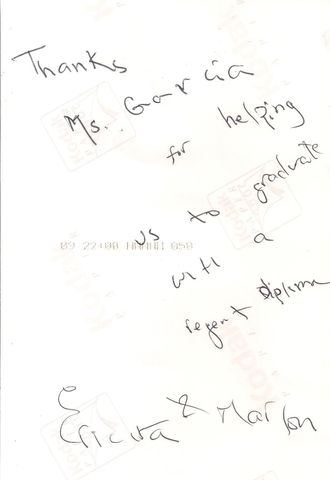 Thanks
Ms. Garcia
for helping
us to graduate
with a
regent diploma
& Marlon
09 22+00 NNNNN 050
Kodak